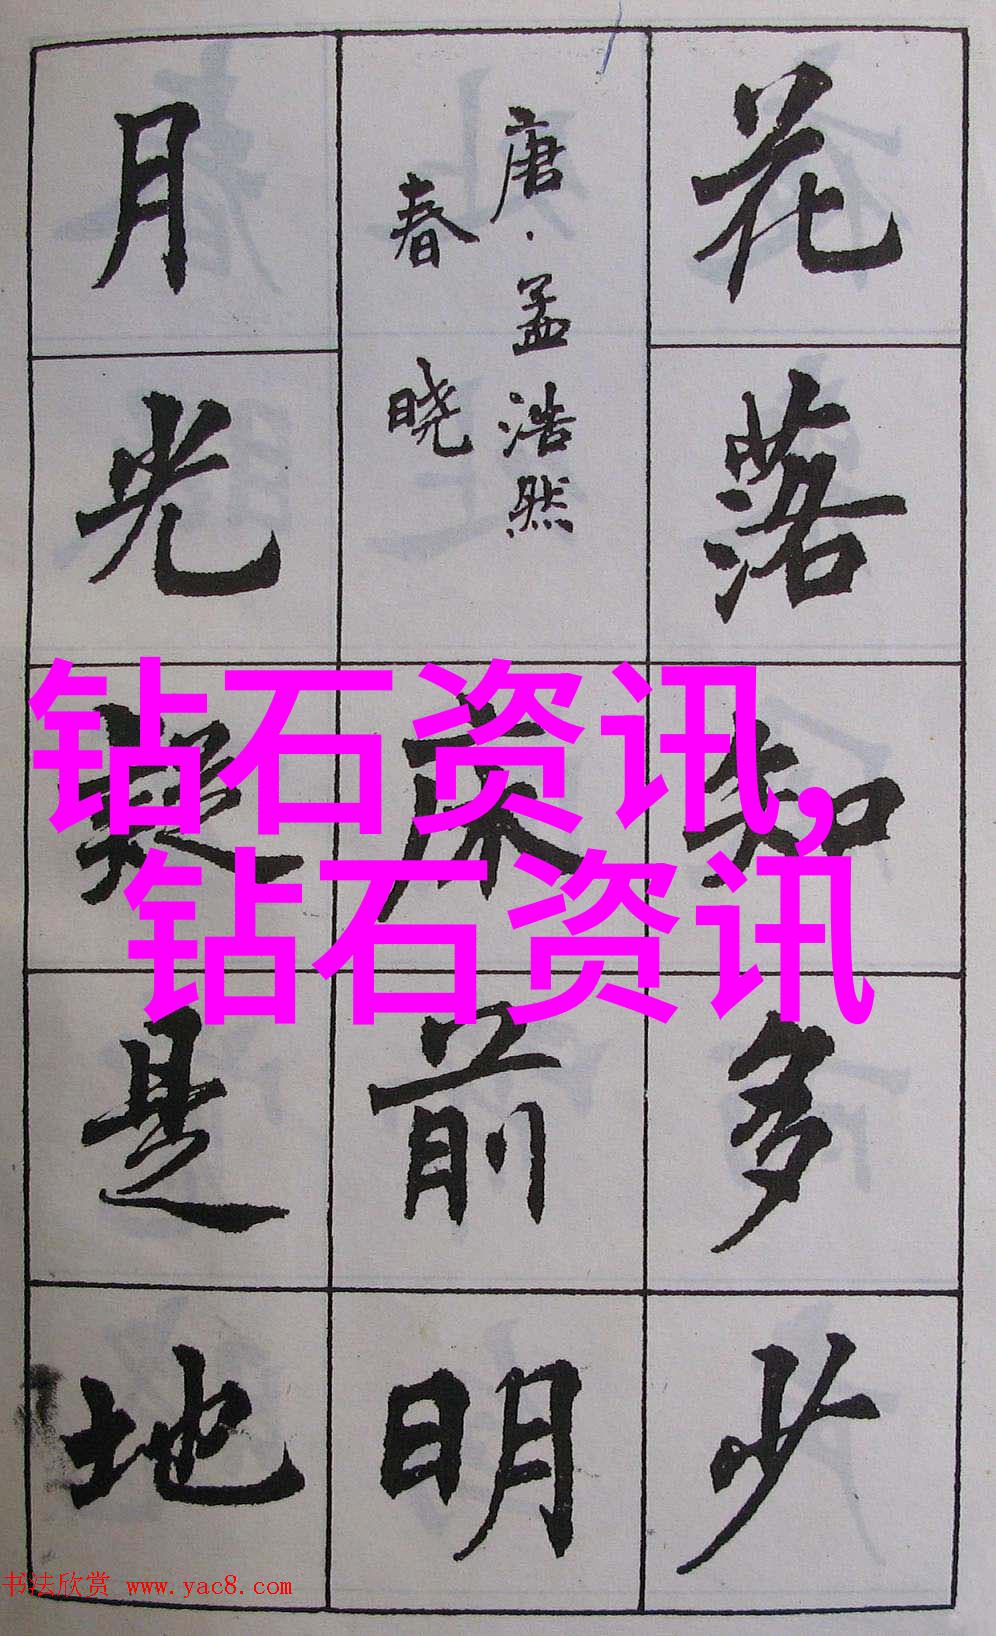 花落知多少
唐·孟浩然
春晓
床前明
月光疑是地
钻石资讯,
钻石资讯
书法欣赏 www.yac8.com